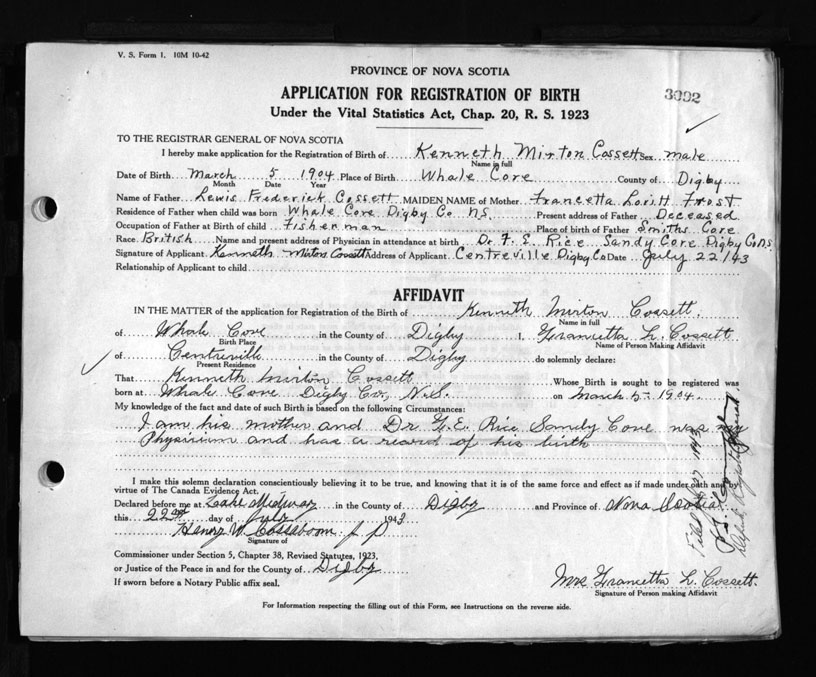 V. S. Form 1. 10M 10-42
PROVINCE OF NOVA SCOTIA
APPLICATION FOR REGISTRATION OF BIRTH
3092
Under the Vital Statistics Act, Chap. 20, R. S. 1923
TO THE REGISTRAR GENERAL OF NOVA SCOTIA
I hereby make application for the Registration of Birth of Kenneth Mirton Cossett Sex male
Name in full
Date of Birth March 5 1904 Place of Birth Whale Cove County of Digby
Month Date Year
Name of Father Lewis Frederick Cossett MAIDEN NAME of Mother Francetta Loritt Frost
Residence of Father when child was born Whale Cove Digby Co N.S. Present address of Father Deceased
Occupation of Father at Birth of child Fisherman Place of birth of Father Smiths Cove
Race British Name and present address of Physician in attendance at birth Dr. F. E. Rice Sandy Cove Digby Co N.S.
Signature of Applicant Kenneth Mirton Cossett Address of Applicant Centreville Digby Co Date July 22/43
Relationship of Applicant to child
AFFIDAVIT
IN THE MATTER of the application for Registration of the Birth of Kenneth Mirton Cossett
Name in full
of Whale Cove in the County of Digby I, Francetta L. Cossett
Birth Place Name of Person Making Affidavit
of Centreville in the County of Digby do solemnly declare:
Present Residence
That Kenneth Mirton Cossett Whose Birth is sought to be registered was
born at Whale Cove Digby Co., N.S. on March 5- 1904.
My knowledge of the fact and date of such Birth is based on the following Circumstances:
I am his mother and Dr F.E. Rice Sandy Cove was my
Physician and has a record of his birth
I make this solemn declaration conscientiously believing it to be true, and knowing that it is of the same force and effect as if made under oath and by
virtue of The Canada Evidence Act.
Declared before me at Lake Midway in the County of Digby and Province of Nova Scotia
this 22nd day of July 1943
Henry W. Cossaboom J P
Signature of
Commissioner under Section 5, Chapter 38, Revised Statutes, 1923,
or Justice of the Peace in and for the County of Digby
If sworn before a Notary Public affix seal.
Mrs Francetta L. Cossett.
Signature of Person making Affidavit
For Information respecting the filling out of this Form, see Instructions on the reverse side.
1943